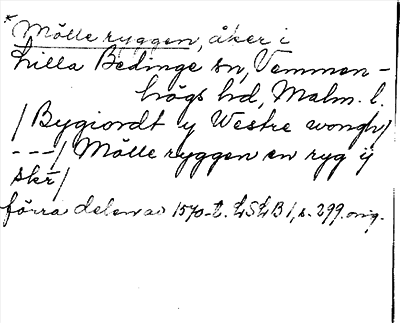 * Mölle ryggen, åker i
Lilla Bedinge sn, Vemmen-
högs hd, Malm. l.
/ Bygiordt y Westre wongh/
---/ Mölle ryggen en ryg ÿ
skr/
förra delen av 1570-t. LSLB 1, s. 299. orig.